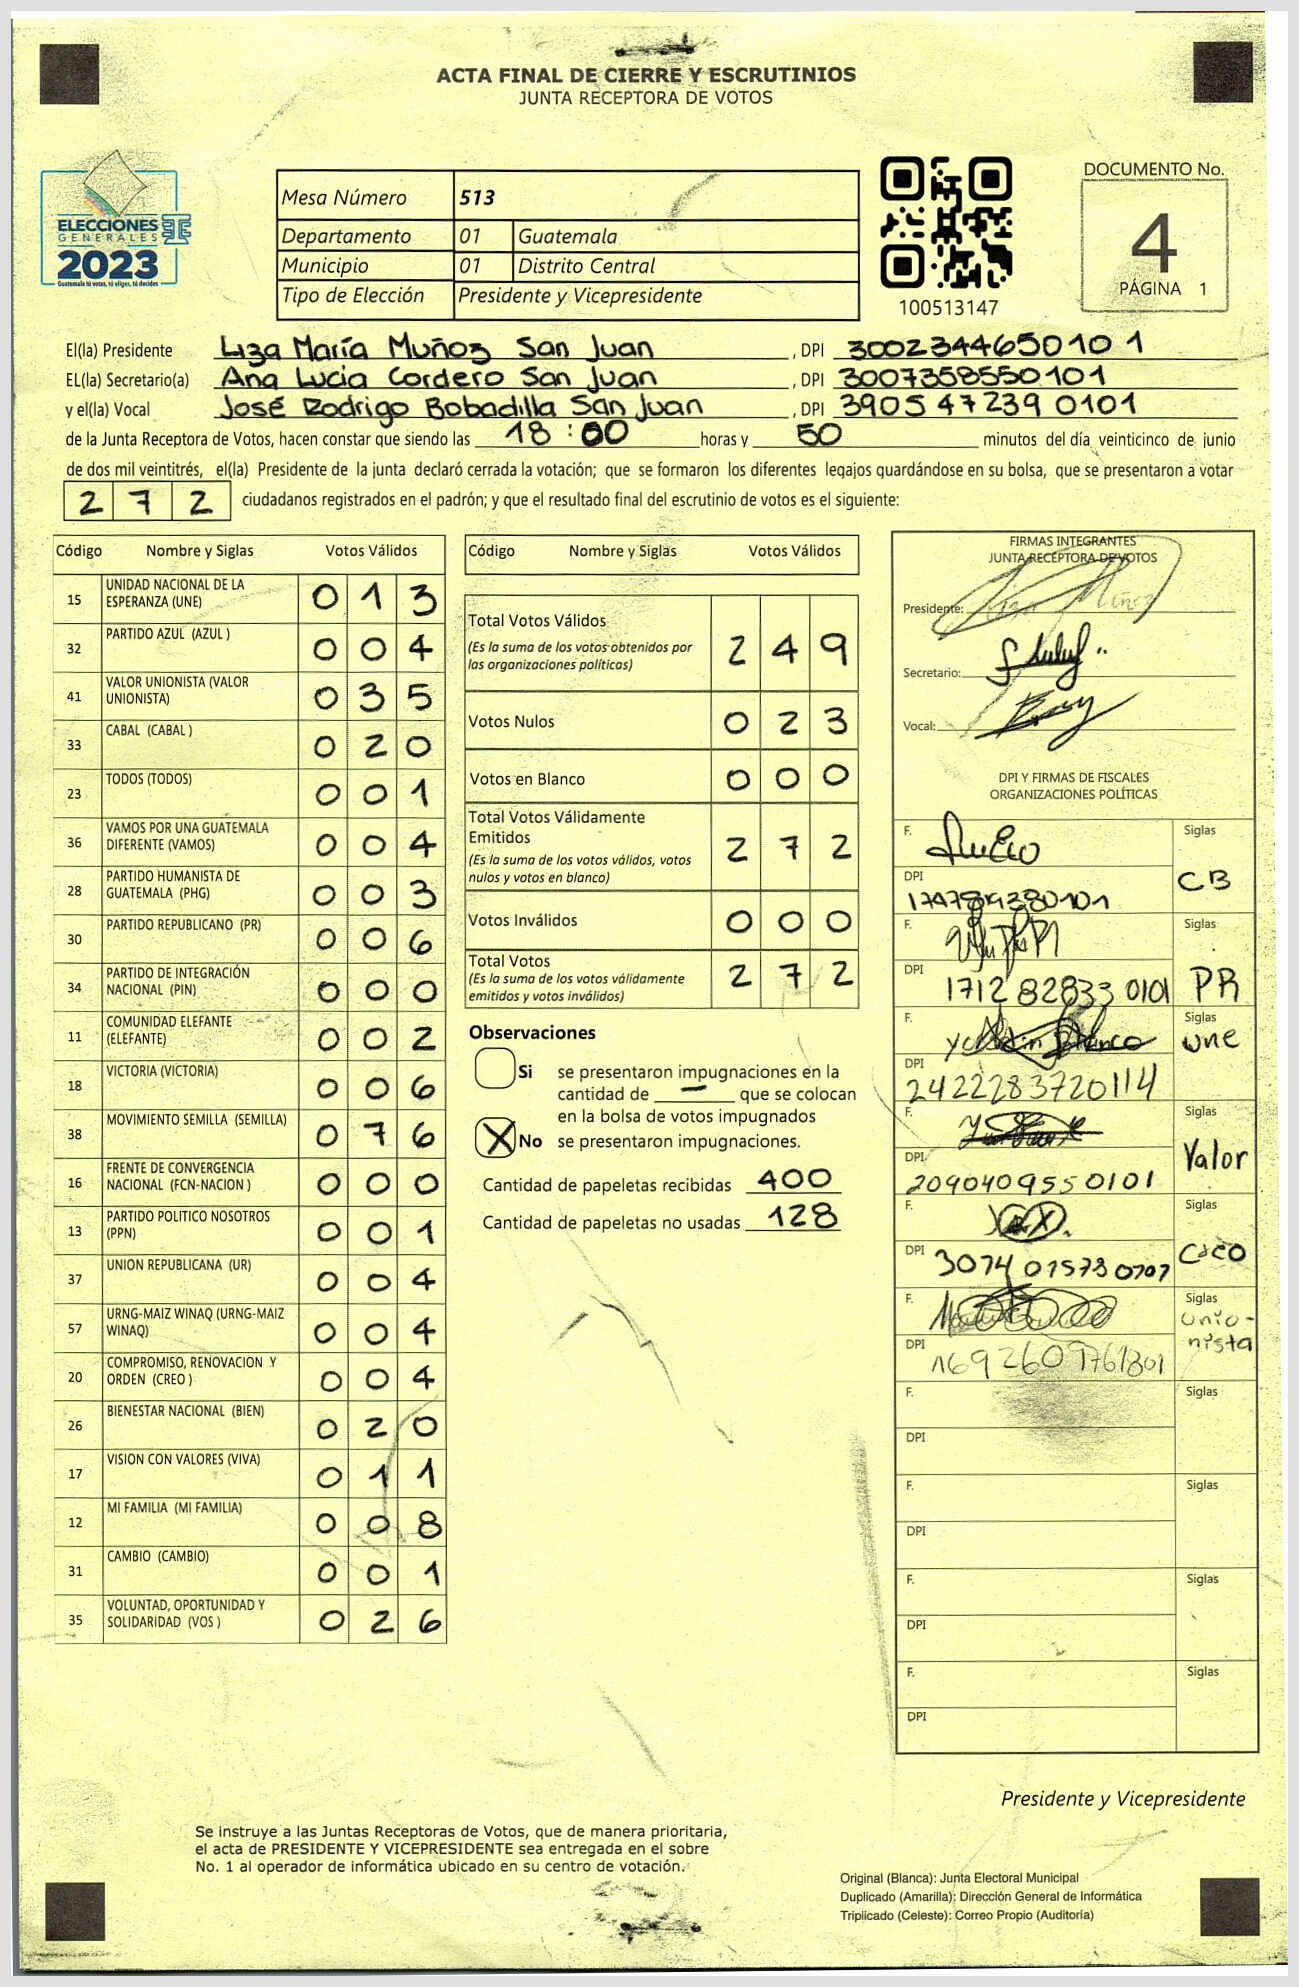 ACTA FINAL DE CIERRE Y ESCRUTINIOS
JUNTA RECEPTORA DE VOTOS
ELECCIONES
GENERALES
2023
Guatemala tú votas, tú eliges, tú decides
Mesa Número 513
Departamento 01 Guatemala
Municipio 01 Distrito Central
Tipo de Elección Presidente y Vicepresidente
100513147
DOCUMENTO No.
4
PÁGINA 1
El(la) Presidente Liza María Muñoz San Juan , DPI 3002344650101
EL(la) Secretario(a) Ana Lucia Cordero San Juan , DPI 3007358550101
y el(la) Vocal José Rodrigo Bobadilla San Juan , DPI 3905472390101
de la Junta Receptora de Votos, hacen constar que siendo las 18:00 horas y 50 minutos del día veinticinco de junio
de dos mil veintitrés, el(la) Presidente de la junta declaró cerrada la votación; que se formaron los diferentes legajos guardándose en su bolsa, que se presentaron a votar
272 ciudadanos registrados en el padrón; y que el resultado final del escrutinio de votos es el siguiente:
Código Nombre y Siglas Votos Válidos
15 UNIDAD NACIONAL DE LA
ESPERANZA (UNE) 013
32 PARTIDO AZUL (AZUL ) 004
41 VALOR UNIONISTA (VALOR
UNIONISTA) 035
33 CABAL (CABAL ) 020
23 TODOS (TODOS) 001
36 VAMOS POR UNA GUATEMALA
DIFERENTE (VAMOS) 004
28 PARTIDO HUMANISTA DE
GUATEMALA (PHG) 003
30 PARTIDO REPUBLICANO (PR) 006
34 PARTIDO DE INTEGRACIÓN
NACIONAL (PIN) 000
11 COMUNIDAD ELEFANTE
(ELEFANTE) 002
18 VICTORIA (VICTORIA) 006
38 MOVIMIENTO SEMILLA (SEMILLA) 076
16 FRENTE DE CONVERGENCIA
NACIONAL (FCN-NACION ) 000
13 PARTIDO POLITICO NOSOTROS
(PPN) 001
37 UNION REPUBLICANA (UR) 004
57 URNG-MAIZ WINAQ (URNG-MAIZ
WINAQ) 004
20 COMPROMISO, RENOVACION Y
ORDEN (CREO ) 004
26 BIENESTAR NACIONAL (BIEN) 020
17 VISION CON VALORES (VIVA) 011
12 MI FAMILIA (MI FAMILIA) 008
31 CAMBIO (CAMBIO) 001
35 VOLUNTAD, OPORTUNIDAD Y
SOLIDARIDAD (VOS ) 026
Código Nombre y Siglas Votos Válidos
Total Votos Válidos
(Es la suma de los votos obtenidos por
las organizaciones políticas) 249
Votos Nulos 023
Votos en Blanco 000
Total Votos Válidamente
Emitidos
(Es la suma de los votos válidos, votos
nulos y votos en blanco) 272
Votos Inválidos 000
Total Votos
(Es la suma de los votos válidamente
emitidos y votos inválidos) 272
Observaciones
Si se presentaron impugnaciones en la
cantidad de — que se colocan
en la bolsa de votos impugnados
X No se presentaron impugnaciones.
Cantidad de papeletas recibidas 400
Cantidad de papeletas no usadas 128
FIRMAS INTEGRANTES
JUNTA RECEPTORA DE VOTOS
Presidente:
Secretario:
Vocal:
DPI Y FIRMAS DE FISCALES
ORGANIZACIONES POLÍTICAS
F. Siglas
DPI CB
F. Siglas
DPI 1712828330101 PR
F. Siglas
DPI 2422283720114 une
F. Siglas
DPI 2090409550101 Valor
F. Siglas
DPI 3074015730707
F. Siglas
unio-
nista
DPI 1692609761801
F. Siglas
DPI
F. Siglas
DPI
F. Siglas
DPI
F. Siglas
DPI
Presidente y Vicepresidente
Se instruye a las Juntas Receptoras de Votos, que de manera prioritaria,
el acta de PRESIDENTE Y VICEPRESIDENTE sea entregada en el sobre
No. 1 al operador de informática ubicado en su centro de votación.
Original (Blanca): Junta Electoral Municipal
Duplicado (Amarilla): Dirección General de Informática
Triplicado (Celeste): Correo Propio (Auditoría)